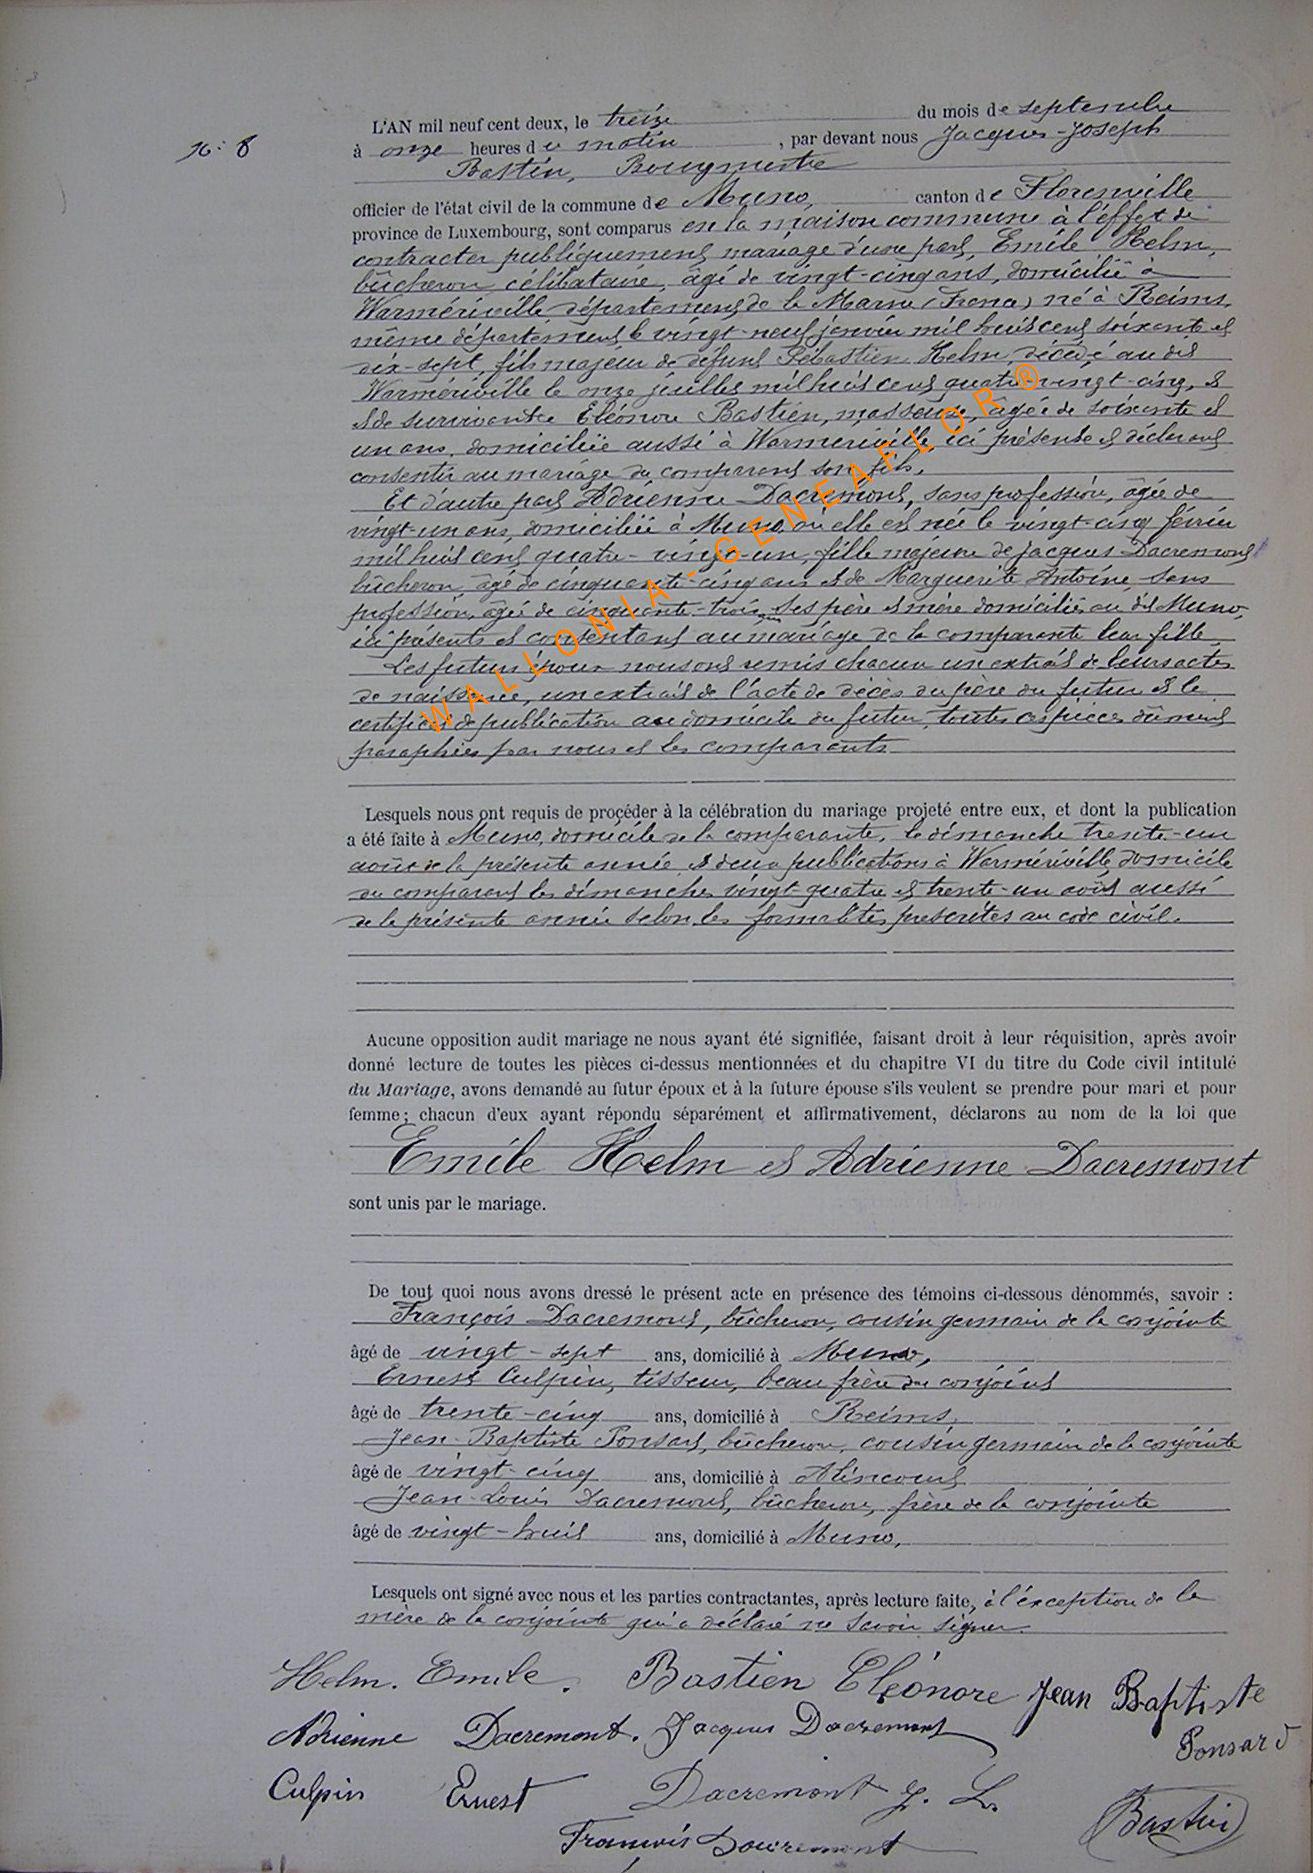 N: 8
L'AN mil neuf cent deux, le treize du mois de septembre
à onze heures du matin, par devant nous Jacques-Joseph
Bastin, Bourgmestre
officier de l'état civil de la commune de Muno, canton de Florenville
province de Luxembourg, sont comparus en la maison commune à l'effet de
contracter publiquement mariage d'une part, Emile Helm,
bûcheron célibataire, âgé de vingt-cinq ans, domicilié à
Warmériville département de la Marne (France) né à Reims,
même département le vingt-neuf janvier mil huit cent soixante et
dix-sept, fils majeur de défunt Sébastien Helm, décédé au dit
Warmériville le onze juillet mil huit cent quatre-vingt-cinq, et
et de survivante Eléonore Bastien, masseuse, âgée de soixante et
un ans, domiciliée aussi à Warmériville, ici présente et déclarant
consentir au mariage du comparant son fils.
Et d'autre part Adrienne Dacremont, sans profession, âgée de
vingt-un ans, domiciliée à Muno où elle est née le vingt-cinq février
mil huit cent quatre-vingt-un, fille majeure de Jacques Dacremont
bûcheron, âgé de cinquante-cinq ans et de Marguerite Antoine, sans
profession, âgée de cinquante-trois ans, ses père et mère domiciliés au dit Muno,
ici présents et consentant au mariage de la comparante leur fille
Les futurs époux nous ont remis chacun un extrait de leurs actes
de naissance, un extrait de l'acte de décès du père du futur et le
certificat de publication au domicile du futur, toutes ces pièces dûment
paraphées par nous et les comparants
Lesquels nous ont requis de procéder à la célébration du mariage projeté entre eux, et dont la publication
a été faite à Muno, domicile de la comparante, le dimanche trente-un
août de la présente année et deux publications à Warmériville, domicile
du comparant les dimanches vingt quatre et trente-un août aussi
de la présente année selon les formalités prescrites au code civil.
Aucune opposition audit mariage ne nous ayant été signifiée, faisant droit à leur réquisition, après avoir
donné lecture de toutes les pièces ci-dessus mentionnées et du chapitre VI du titre du Code civil intitulé
du Mariage, avons demandé au futur époux et à la future épouse s'ils veulent se prendre pour mari et pour
femme; chacun d'eux ayant répondu séparément et affirmativement, déclarons au nom de la loi que
Emile Helm et Adrienne Dacremont
sont unis par le mariage.
De tout quoi nous avons dressé le présent acte en présence des témoins ci-dessous dénommés, savoir :
François Dacremont, bûcheron, cousin germain de la conjointe
âgé de vingt-sept ans, domicilié à Muno,
Ernest Culpin, tisseur, beau frère du conjoint
âgé de trente-cinq ans, domicilié à Reims,
Jean-Baptiste Ponsart, bûcheron, cousin germain de la conjointe
âgé de vingt-cinq ans, domicilié à Alincourt
Jean-Louis Dacremont, bûcheron, frère de la conjointe
âgé de vingt-huit ans, domicilié à Muno,
Lesquels ont signé avec nous et les parties contractantes, après lecture faite, à l'exception de la
mère de la conjointe qui a déclaré ne savoir signer.
Helm. Emile. Bastien Eléonore Jean Baptiste
Ponsard
Adrienne Dacremont. Jacques Dacremont
Culpin Ernest Dacremont J. L.
Bastin
François Dacremont
WALLONIA-GENEAFLOR®